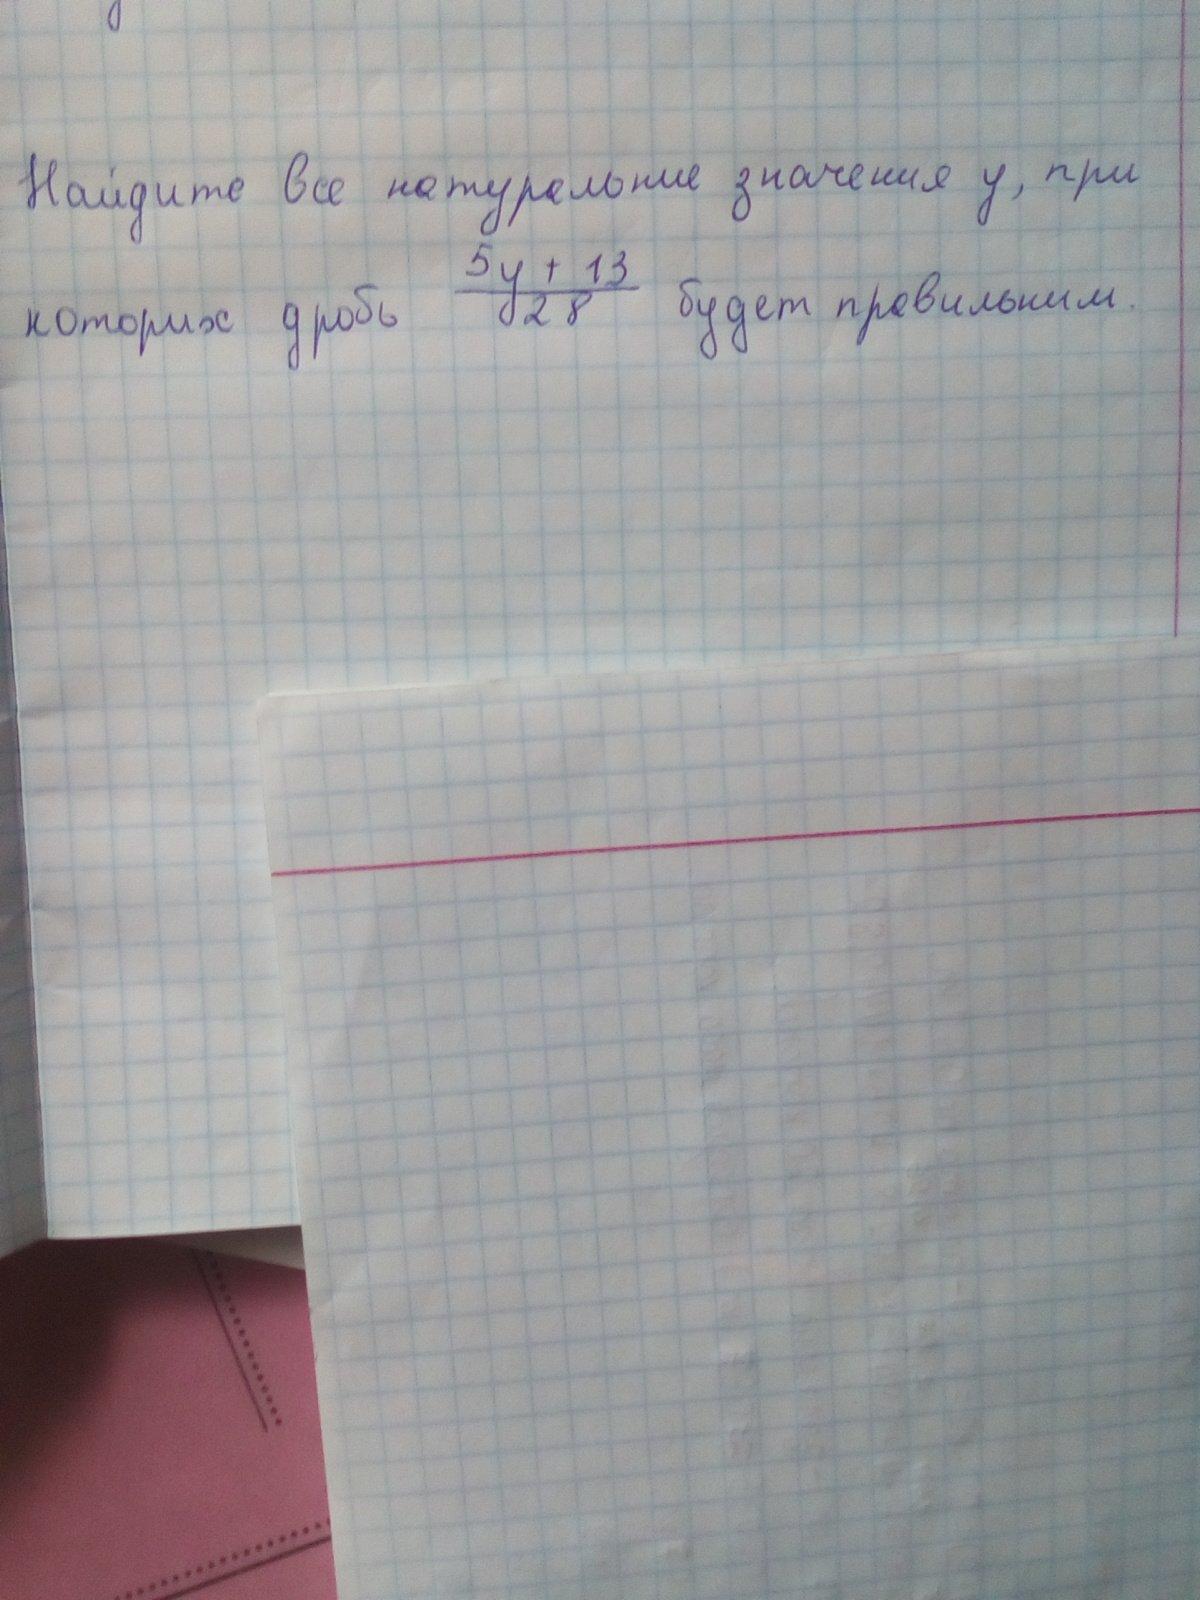 Найдите все натуральние значения у, при
которих дробь \frac{5у + 13}{28} будет правильним.